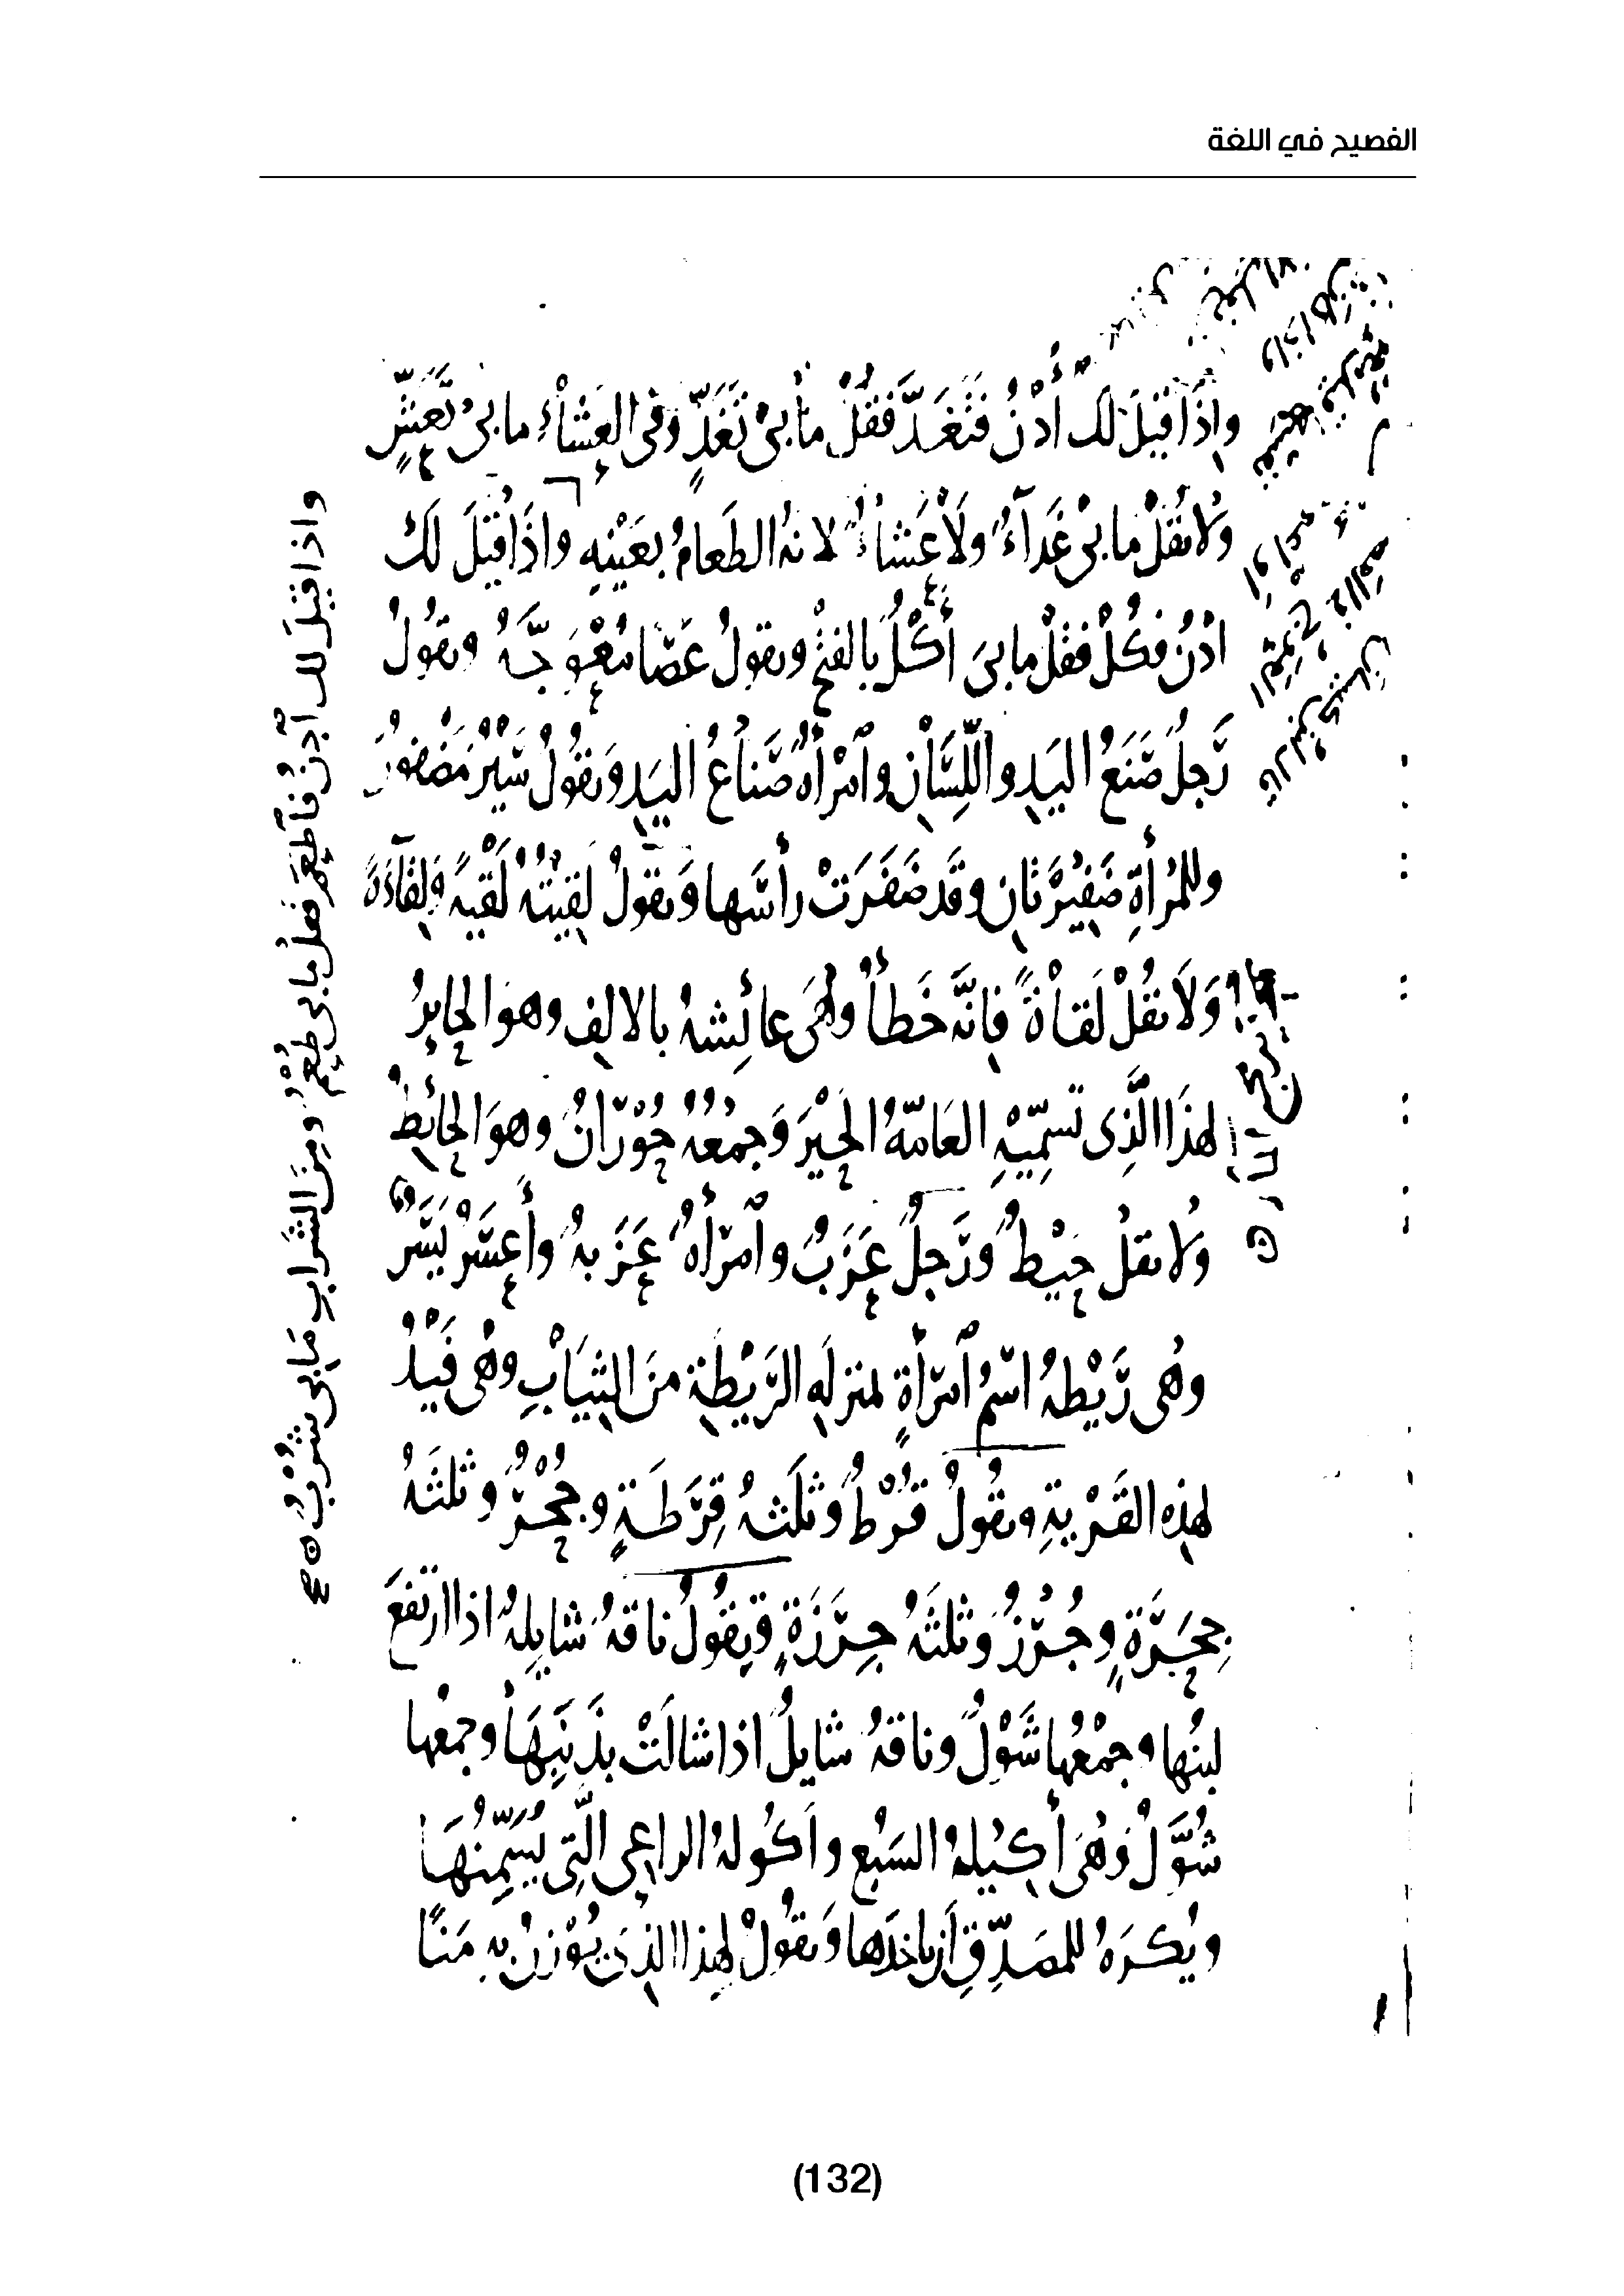 الفصيح في اللغة
وَاِذَا قِيلَ لَكَ أُدْنُ فَتَغَدَّ فَقُلْ مَا بِىْ تَغَدٍّ وَفِى العَشَاءِ مَا بِىْ تَعَشٍّ
وَلَا تَقُلْ مَا بِىْ غَدَآءٌ وَلَا عَشَاءٌ لانهُ الطَعامُ بِعَيْنِهِ وَاِذَا قِيْلَ لَكَ
اُدْنُ فَكُلْ فَقُلْ مَا بِىَ أَكْلٌ بِالفَتْحِ وتقولُ عَصًا مُعْوَجَّةٌ وتقُولُ
رَجلٌ صَنَعُ اليَدِ واللِّسَانِ وَٱمْرَأةٌ صَنَاعُ اليَدِ وَتقُولُ سَيْرٌ مَضْفُورٌ
وللمْرأةِ ضَفِيْرَتَانِ وقَد ضَفَرَتْ رأسَها وَتقُولُ لَقِيْتُهُ لَقْيَةً وَلِقَآءَةً
وَلَا تقُلْ لَقَاْةً فَاِنَّهُ خَطَأٌ وَهِىَ عَائِشَةُ بالالِفِ وهوَ الحَايِرُ
لهذَا الَّذِى تُسَمِّيْهِ العَامَّةُ الحَيْرَ وَجمْعُهُ حُوْرَانٌ وهوَ الحَائِطُ
وَلا تقلْ حَيْطٌ وَرَجلٌ عَزَبٌ وٱمْرأةٌ عَزَبةٌ وأَعسَرُ يَسَرٌ
وَهِى رَيْطَةُ اسْمُ ٱمْرَأةٍ بمنزلَةِ الرَيْطَةِ مِنَ الثِيَابِ وهْى فَيْدُ
لهذِهِ القَرْيةِ وتقُولُ قُرْطٌ وَثلثَةُ قِرَطَةٍ وجُحْرٌ وَثلثَةُ
جِحَرَةٍ وجُرْزٌ وَثلثَةُ جِرَزَةٍ وَتقُولُ ناقةٌ شايِلةٌ اذا ارتفعَ
لبنُها وجمْعُها شَوْلٌ وناقةٌ شايلٌ اذا شالَتْ بذَنَبِهَا وجمْعُها
شُوَّلٌ وَهْىَ أكِيْلةُ السَبُعِ واَكُولةُ الراعِى الَّتِى يُسَمِّنُهَا
ويُكرَهُ للمُصَدِّقِ اَن ياخذَها وَتقُولُ لهذا الذِىْ يُوْزَنُ بِهِ مَنًا
واذا قيْلَ لك اُدْنُ فَاطعَمْ فقلْ ما بى طُعْمٌ ومِنَ الشَرابِ مَا بى شُرْبٌ
(132)